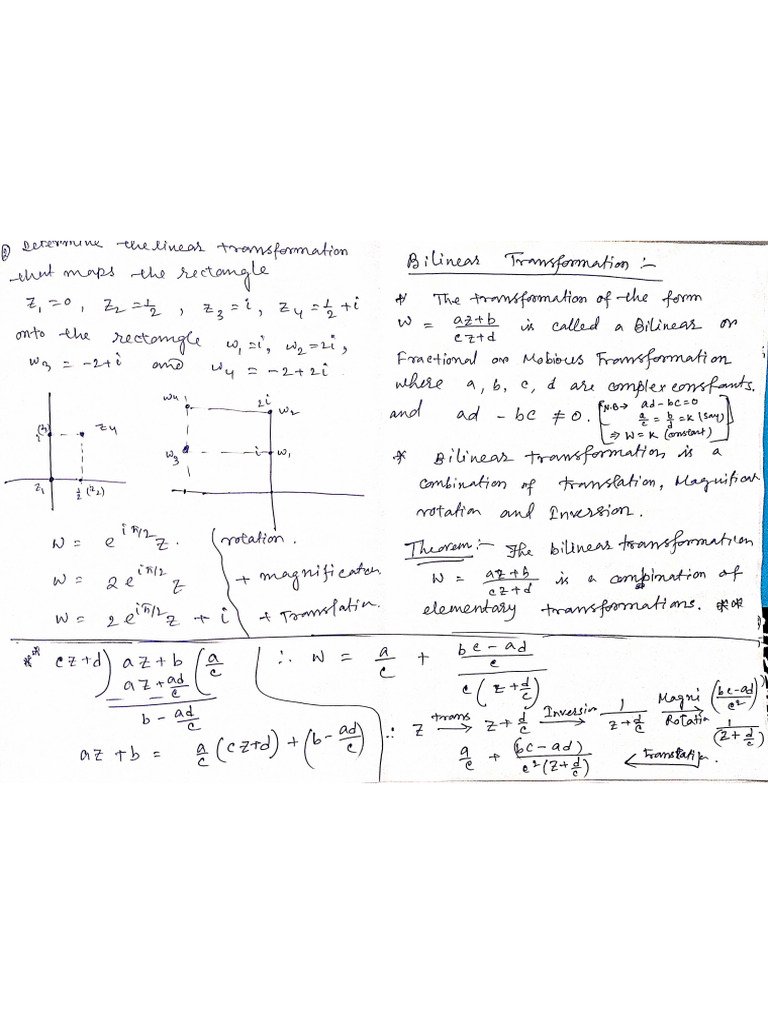 Determine the linear transformation
that maps the rectangle
z₁=0, z₂=1/2, z₃=i, z₄=1/2+i
onto the rectangle w₁=i, w₂=2i,
w₃=-2+i and w₄=-2+2i.
z₄
z₁
1/2 (z₂)
w₄
2i
w₂
w₃
i
w₁
w = e^{iπ/2} z. rotation.
w = 2e^{iπ/2} z + magnification
w = 2e^{iπ/2} z + i + Translation.
Bilinear Transformation :-
* The transformation of the form
w = (az+b)/(cz+d) is called a Bilinear or
Fractional or Mobious Transformation
where a, b, c, d are complex constants.
and ad - bc ≠ 0. [N.B→ ad-bc=0
a/c = b/d = k (say)
⇒ w = k (constant)]
* Bilinear transformation is a
combination of translation, Magnification
rotation and Inversion.
Theorem :- The bilinear transformation
w = (az+b)/(cz+d) is a combination of
elementary transformations. **
** cz+d) az+b (a/c
az + ad/c
- -
b - ad/c
az+b = a/c (cz+d) + (b - ad/c)
∴ w = a/c + ((bc-ad)/c)/(c(z + d/c))
∴ z trans→ z + d/c Inversion→ 1/(z + d/c) Magni Rotation→ ((bc-ad)/c²) 1/(z + d/c)
a/c + (bc-ad)/(c²(z + d/c)) ← Translation.